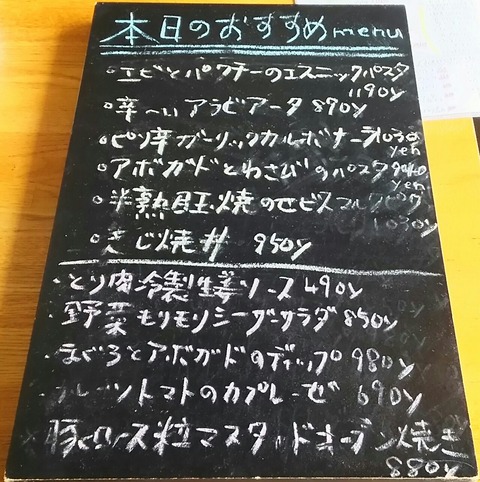 本日のおすすめmenu
○エビとパクチーのエスニックパスタ
1190y
○辛〜いアラビアータ 870y
○ピリ辛ガーリックカルボナーラ1030
yen
○アボガドとわさびのパスタ940
yen
○半熟目玉焼のせビスマルク
1030y
○きじ焼丼 950y
・とり肉冷製生姜ソース490y
・野菜モリモリシーザーサラダ850y
・まぐろとアボガドのディップ980y
・フルーツトマトのカプレーゼ 690y
豚ロース粒マスタードオーブン焼き
880y